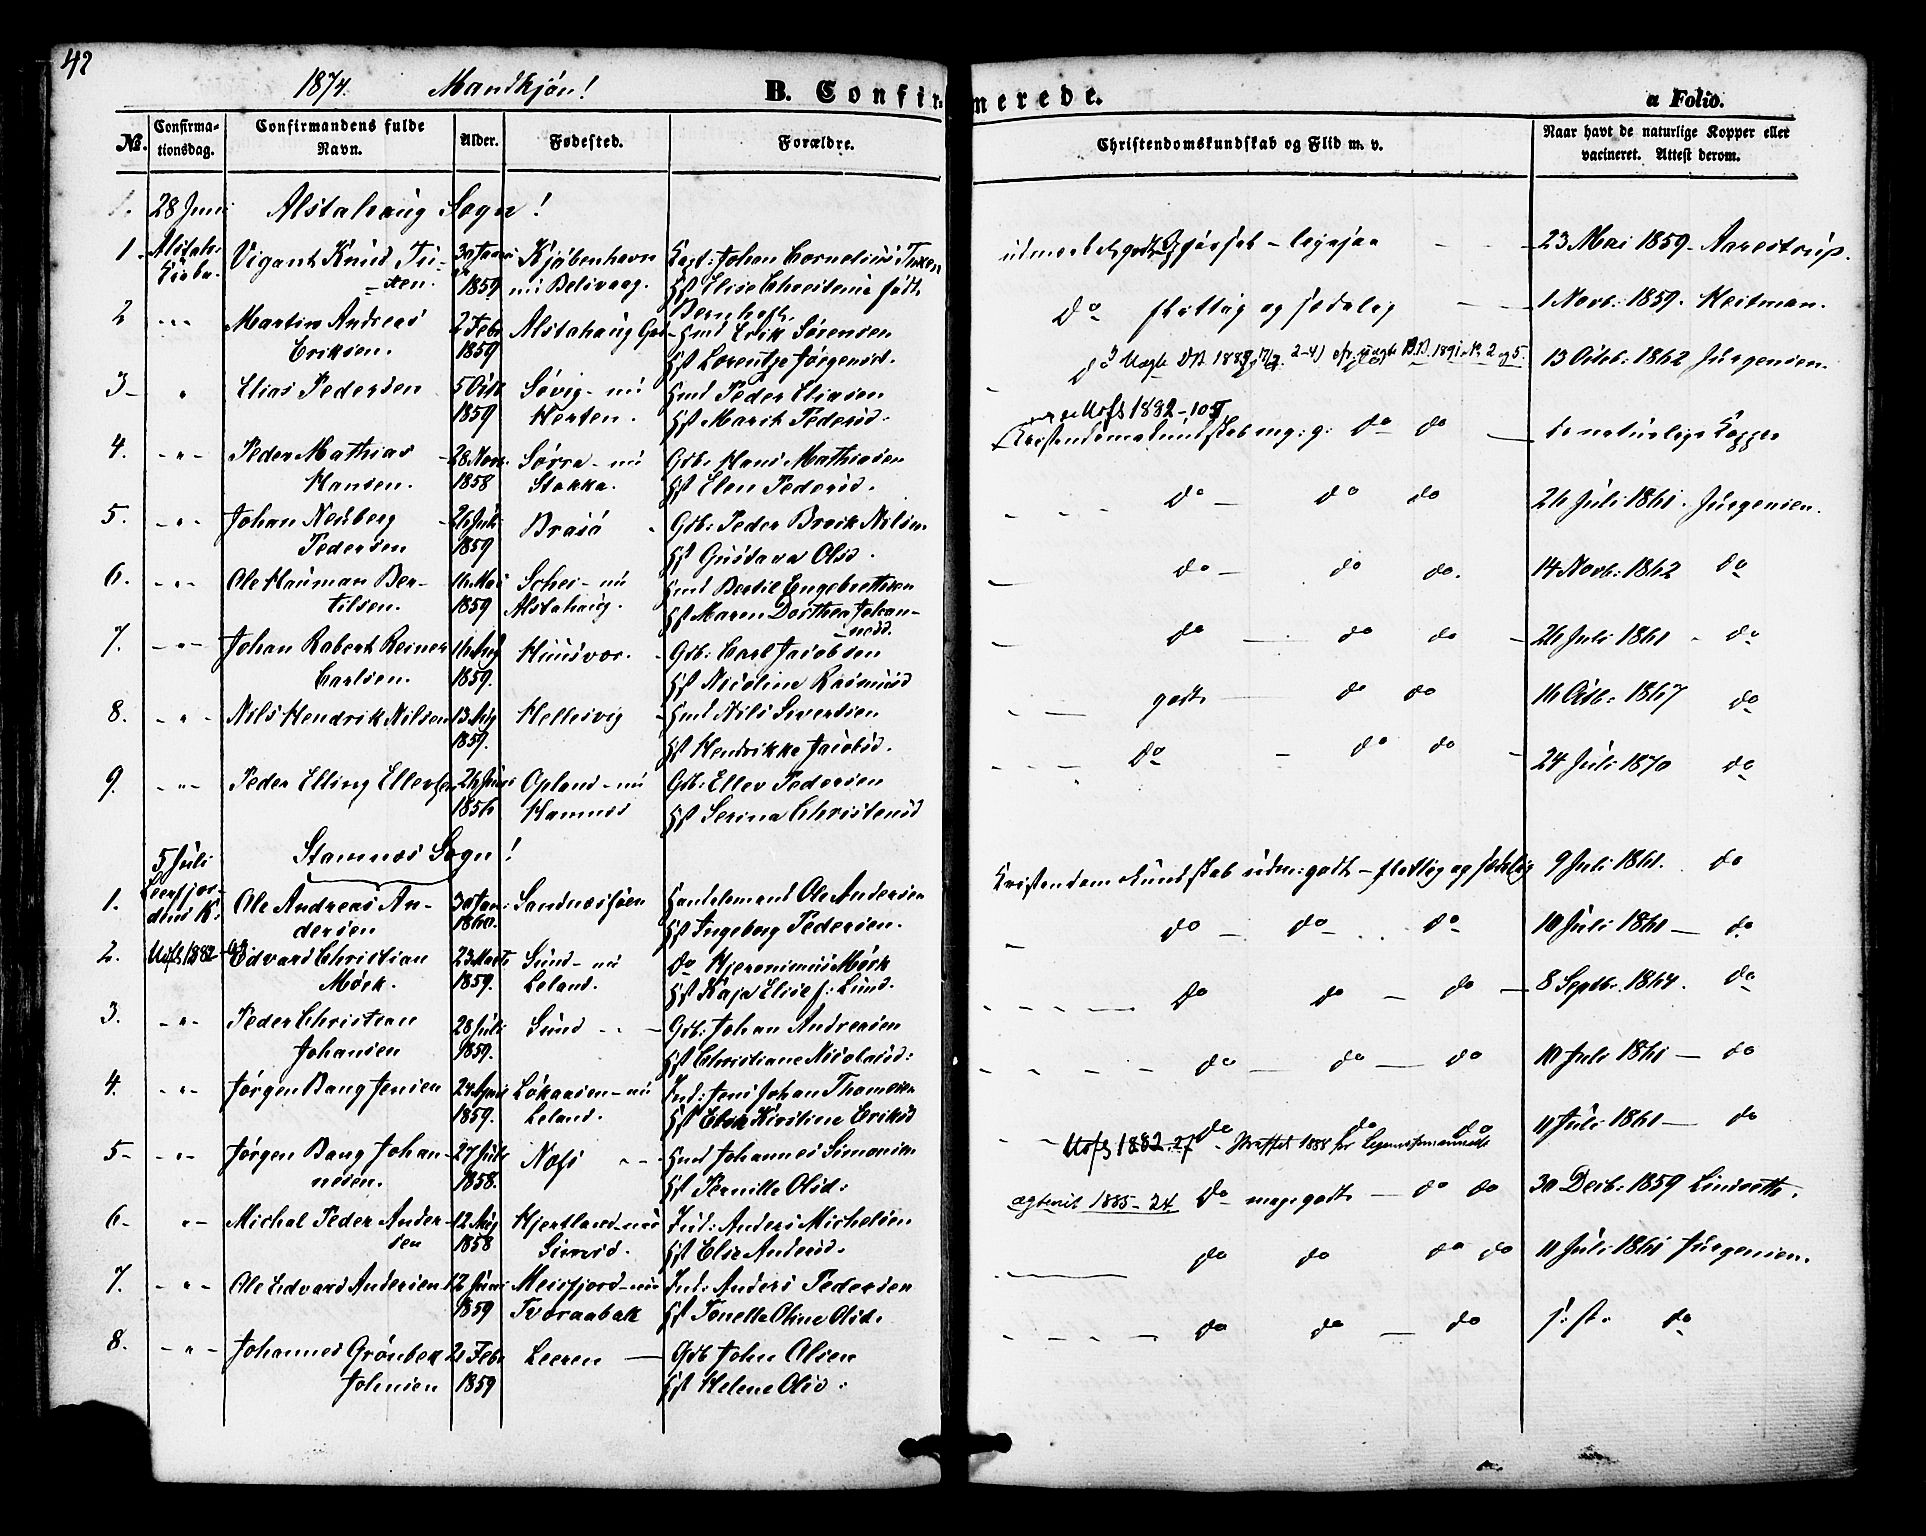 42
1874. Mandkjøn!
B. Confirmerede.
a Folio.
No.
Confirmationsdag.
Confirmandens fulde Navn.
Alder.
Fødested.
Forældre.
Christendomskundskab og Flid m. v.
Naar havt de naturlige Kopper eller vacineret. Attest derom.
28 Juni Alstahaug Sogn!
1 Alstah: Kirke Vigant Knud Tuxen. 30 Januar 1859 Kjøbenhavn nu Belsvaag. Capt: Johan Cornelius Tuxen
H/st Elise Christence født Bergh
udmærket godt sædelig 23 Mai 1859 Aarestrup.
2 Martin Andreas Eriksen. 2 Febr 1859 Alstahaug Gmd Erik Sørensen
H/st Lorentze Jørgensd.
do flittig og sædelig 1 Novb: 1859. Heitman.
3 Elias Pedersen 5 Octb 1859 Søvig nu Herten. Gmd Peder Eliasen
H/st Marit Pedersd.
do 13 Octb: 1862 Jürgensen.
4. Peder Mathias Hansen. 28 Novr. 1858 Sørra nu Stokka. Gdb: Hans Mathiasen
H/st Elen Pedersd.
Uofs 1882-105
Kristendomskundskab mg: g: do do de naturlige Kopper
5. Johan Neuberg Pedersen 26 Juli 1859 Brasø Gdb: Peder Brok Nilsen
H/st Gustava Olsd.
do do do 26 Juli 1861. Jürgensen.
6. Ole Hauman Bertilsen. 16 Mai 1859 Schei nu Alstahaug. Gmd Bertil Engebrethsen
H/st Maren Dorthea Johannesd.
do do do. 14 Novb: 1862 do
7. Johan Robert Reiner Carlsen. 16 Aug 1859. Huusvær. Gdb: Carl Jacobsen
H/st Nicoline Rasmusd
do do do 26 Juli 1861 do
8. Nils Hendrik Nilsen 13 Aug 1859. Hellesvig Gmd Nils Sivertsen
H/st Hendrikke Jacobsd.
godt do do 16 Octb: 1867 do
9. Peder Elling Ellevsen 26 Juni 1856 Opland nu Hamnes Gdb: Ellev Pedersen
H/st Serina Christensd
do do do 24 Juli 1870 do
5 Juli Stamnes Sogn!
1. Leerfjordens K: Ole Andreas Andersen 30 Jan: 1860. Sandnessjøen Handelsmand Ole Andersen
H/st Ingeborg Pedersen.
Kristendomskundskab udm: godt - flittig og sædelig 9 Juli 1861. do
2. Uofs 1882 Edvard Christian Mørk. 23 Marts 1859. Sund nu Leland. do Hjeronimus Mørk
H/st Kaja Elise f: Lund.
do do do 10 Juli 1861 do
3. Peder Christian Johansen 28 Juli 1859. Sund Gdb: Johan Andreasen
H/st Christiane Nicolaisd:
do do do 8 Septbr. 1864. do
4. Jørgen Bang Jensen 24 April 1859. Løkaasen nu Leland. Ind: Jens Johan Thomesen
H/st Elen Kirstine Eriksd
do do do 10 Juli 1861 do
5 Jørgen Bang Johannesen. 27 Juli 1858. Næss Gmd Johannes Simonsen
H/st Pernille Olsd:
Uofs 1882-27 do do do 11 Juli 1861 do
6 Michal Peder Andersen 12 Aug 1858 Hjertland nu Simsø. Ind: Anders Michelsen
H/st Elsa Andersd.
egteviet 1885-24 do meget godt do do 30 Decb: 1859
7. Ole Edvard Andersen 12 Juni 1859 Meisfjord nu Tværaabak Ind: Anders Pedersen
H/st Tonette Oline Olsd.
do do do do 11 Juli 1861 Jürgensen.
8. Johannes Grønbek Johnsen 21 Febr 1859 Leeren Gdb John Olsen
H/st Helene Olsd:
do do do s: st. do